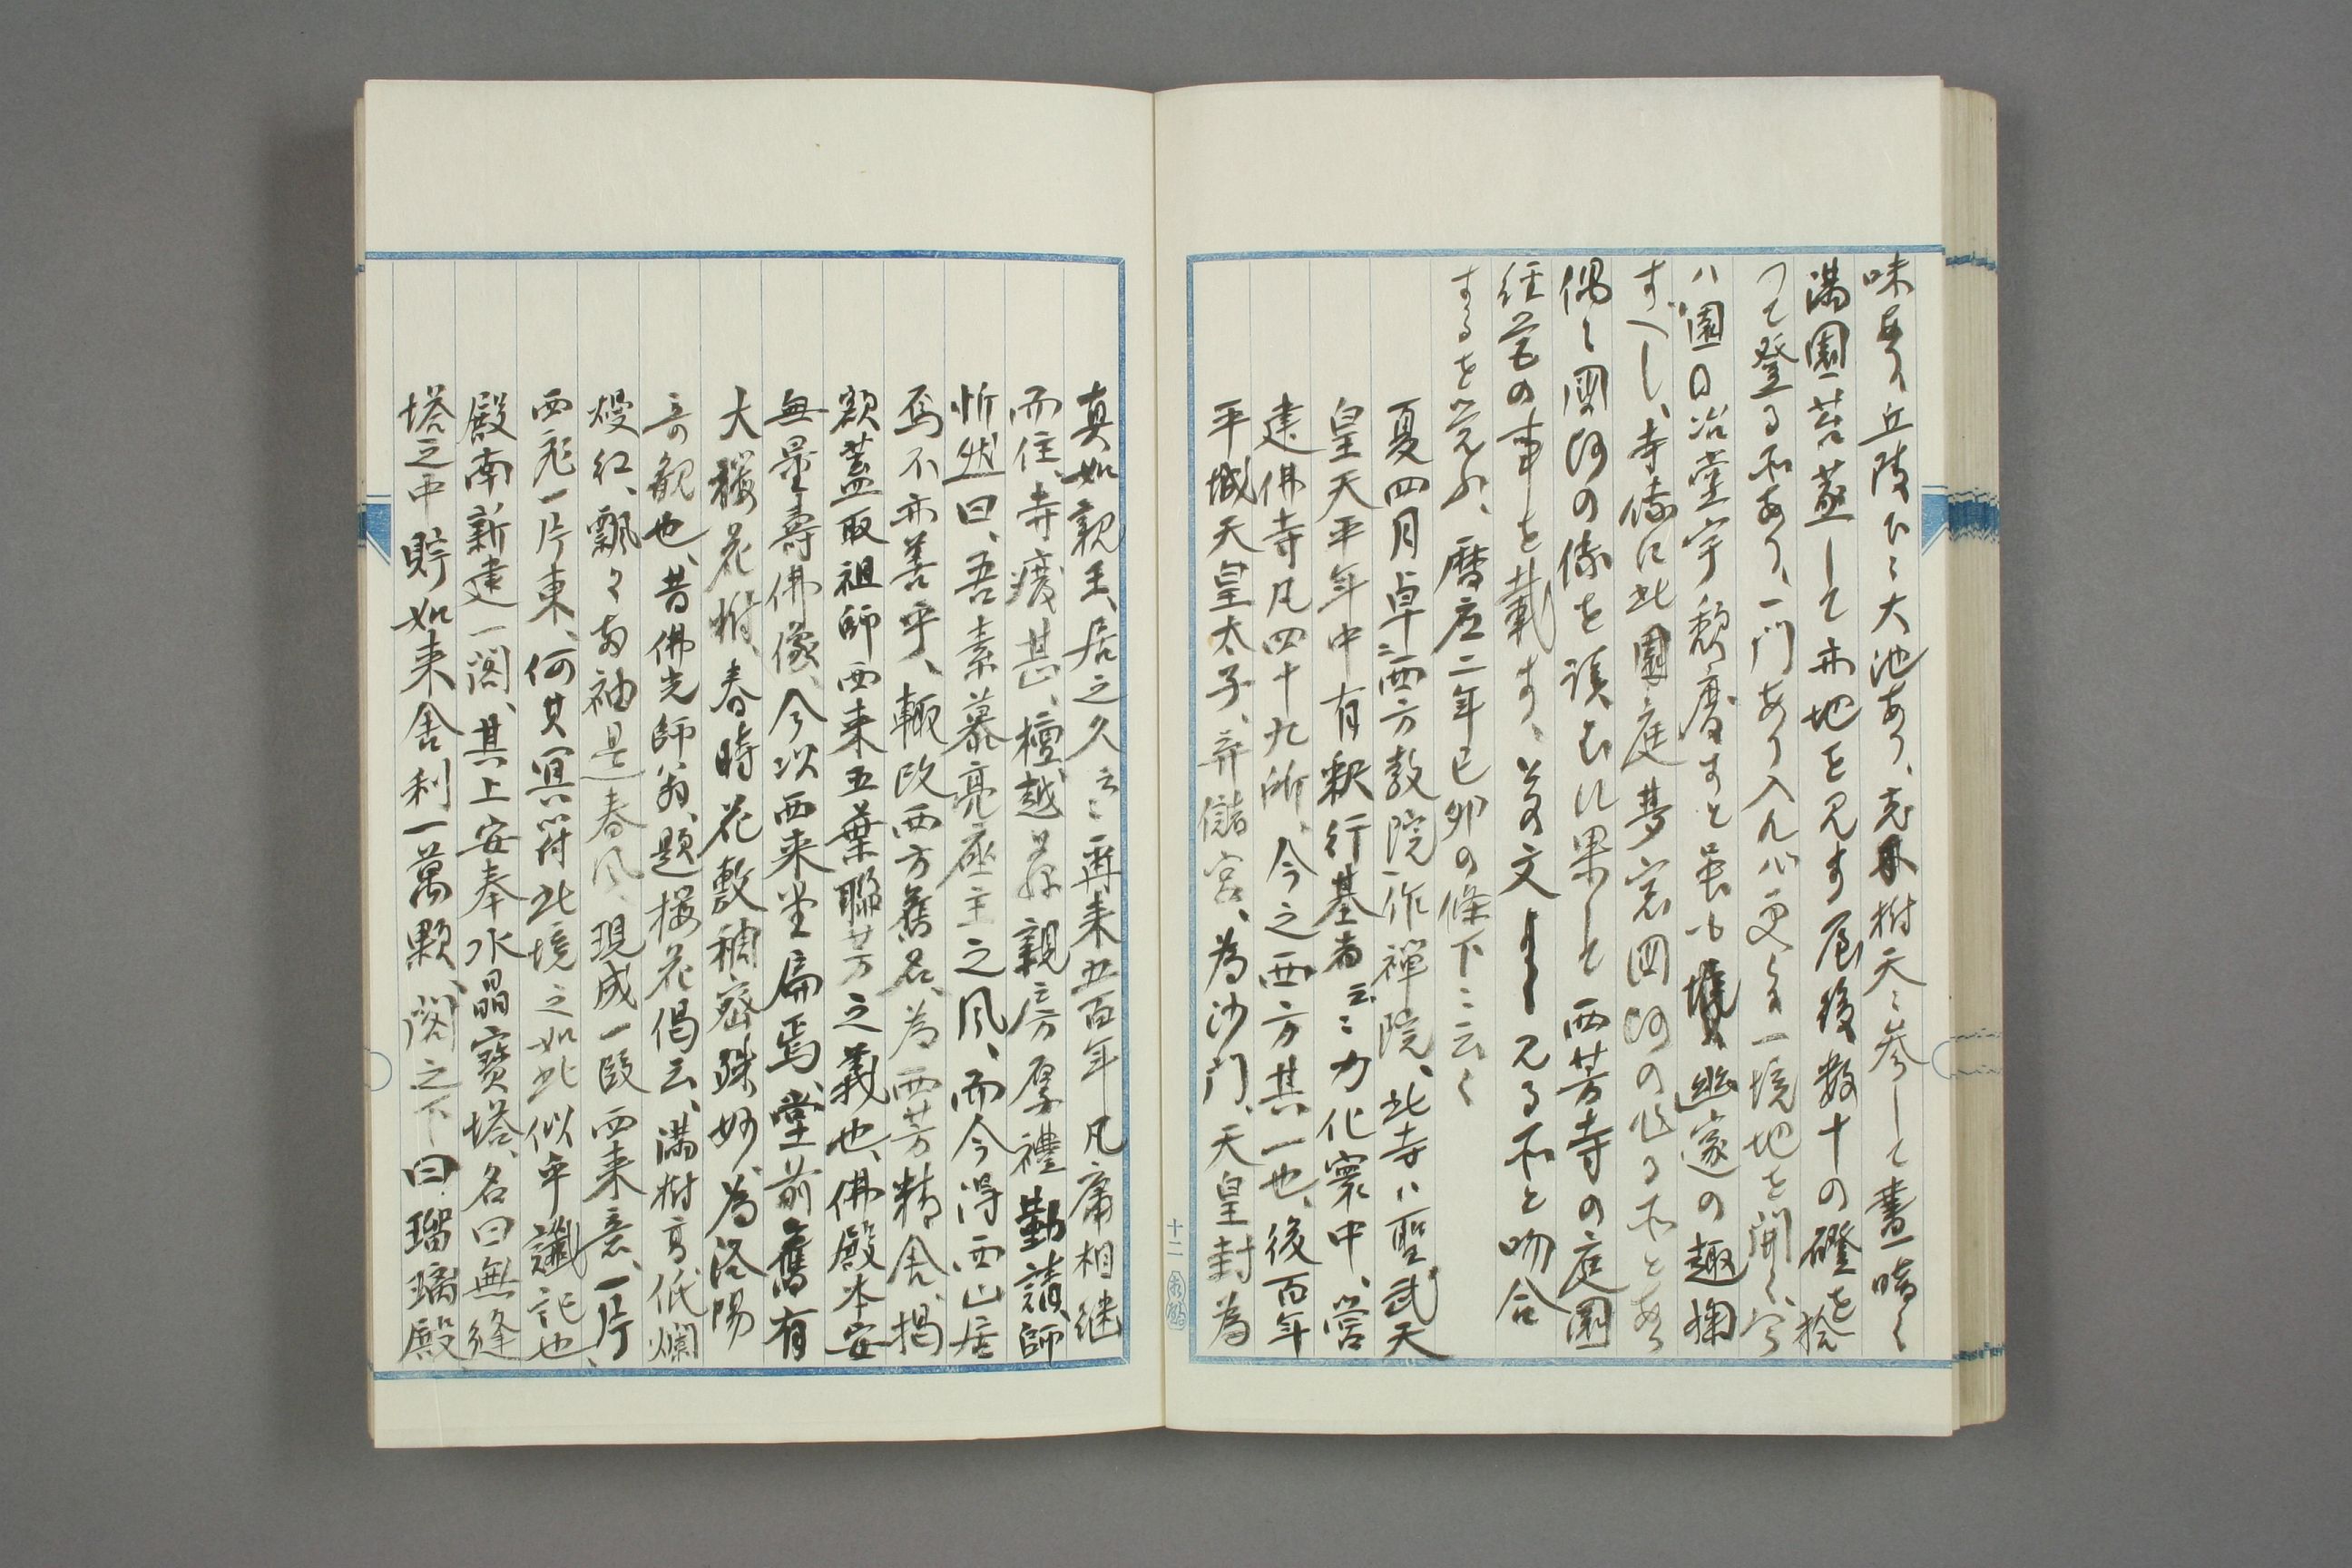 味あり、丘陵下に大池あり、老樹天に参して昼暗く
満園苔蓋して赤地を見す、後数十の磴を拾
つて登る所あり、一門あり入れハ更に一境地を開く、
ハ園日冶堂宇頽廃すと雖も境幽邃の趣掬
すべし、寺伝に此園庭夢窓国師の作る所とあり
偶々国師の伝を読むに果して西芳寺の庭園
経営の事を載す、其文よく見る所と吻合
するを覚ふ、暦応二年己卯の條下に云く
夏四月革西方教院作禅院、此寺ハ聖武天
皇天平年中有釈行基者云云力化寰中、営
建佛寺凡四十九所、今之西方其一也、後百年
平城天皇太子、弃儲宮、為沙門、天皇封為
十二
真如親王、居之久云云、爾来五百年凡庸相継
而住、寺廃甚、檀越藤親房厚禮勤請、師
忻然曰、吾素慕亮座主之風、而今得西山居
焉不亦善乎、輙改西方舊名、為西芳精舎、掲
額蓋取祖師西来五葉聯芳之義也、佛殿本安
無量壽佛像、今以西来堂扁焉、堂前舊有
大桜花樹、春時花敷稠密殊妙、為洛陽
奇観也、昔佛光師翁、題桜花偈云、満樹高低爛
熳紅、飄々両袖是春風、現成一段西来意、一片
西飛一片東、何其冥符此境之如此、似乎讖記也
殿南新建一閣、其上安奉水晶寶塔、名曰無縫
塔之中貯如来舎利一萬顆、閣之下曰瑠璃殿